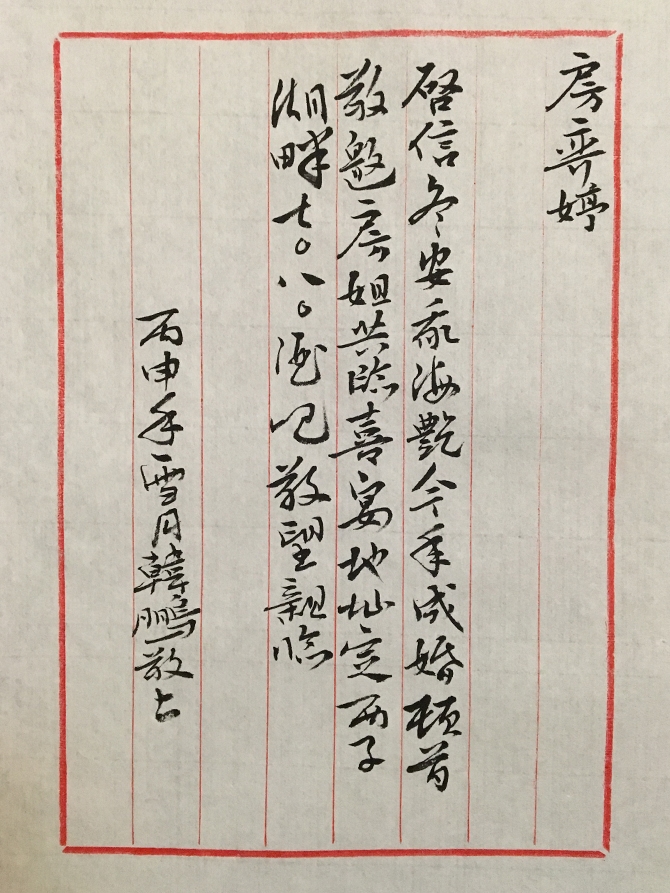 房齊婷
啓信冬安承海艷今年成婚頓首
敬邀房姐共臨喜宴地址定西子
湖畔七〇八〇酒吧敬望親臨
丙申年雪月韓鵬敬上